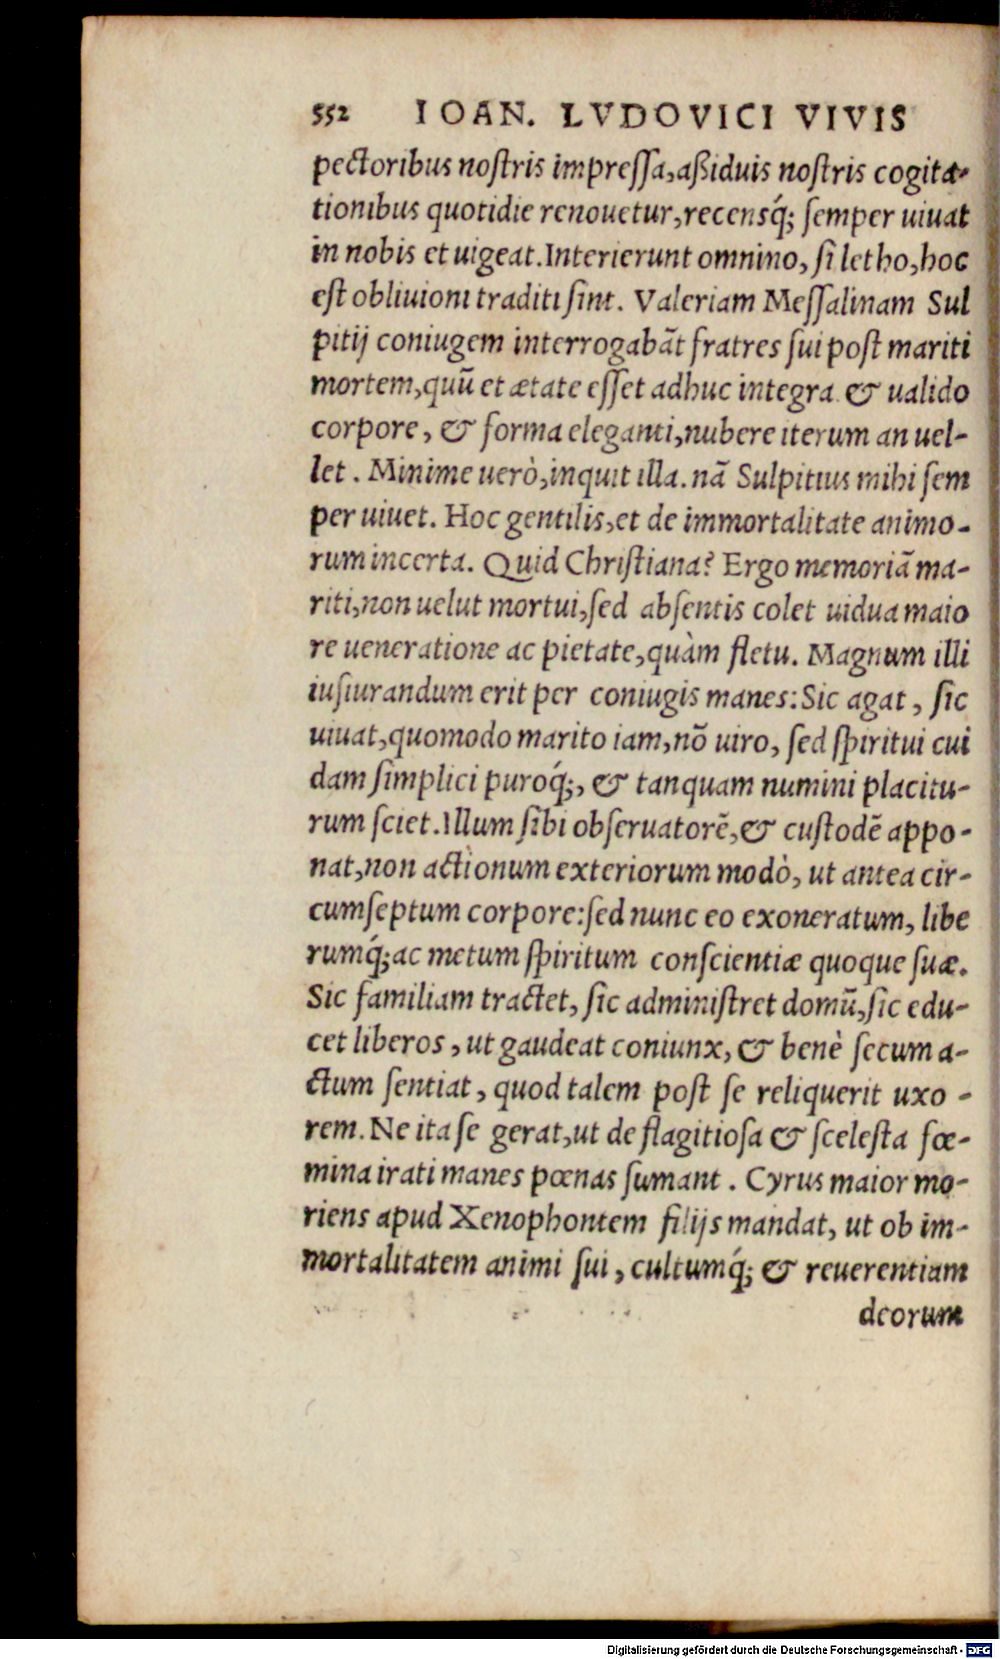 552 IOAN. LVDOVICI VIVIS
pectoribus nostris impressa, aßiduis nostris cogita-
tionibus quotidie renouetur, recensq́; semper uiuat
in nobis et uigeat. Interierunt omnino, si letho, hoc
est obliuioni traditi sint. Valeriam Messalinam Sul
pitij coniugem interrogabãt fratres sui post mariti
mortem, quũ et ætate esset adhuc integra & ualido
corpore, & forma eleganti, nubere iterum an uel-
let. Minime uerò, inquit illa. nã Sulpitius mihi sem
per uiuet. Hoc gentilis, et de immortalitate animo-
rum incerta. Quid Christiana? Ergo memoriã ma-
riti, non uelut mortui, sed absentis colet uidua maio
re ueneratione ac pietate, quàm fletu. Magnum illi
iusiurandum erit per coniugis manes: Sic agat, sic
uiuat, quomodo marito iam, nõ uiro, sed spiritui cui
dam simplici puroq́;, & tanquam numini placitu-
rum sciet. Illum sibi obseruatorẽ, & custodẽ appo-
nat, non actionum exteriorum modò, ut antea cir-
cumseptum corpore: sed nunc eo exoneratum, libe
rumq́; ac metum spiritum conscientiæ quoque suæ.
Sic familiam tractet, sic administret domũ, sic edu-
cet liberos, ut gaudeat coniunx, & benè secum a-
ctum sentiat, quod talem post se reliquerit uxo-
rem. Ne ita se gerat, ut de flagitiosa & scelesta fœ-
mina irati manes pœnas sumant. Cyrus maior mo-
riens apud Xenophontem filijs mandat, ut ob im-
mortalitatem animi sui, cultumq́; & reuerentiam
deorum
Digitalisierung gefördert durch die Deutsche Forschungsgemeinschaft - DFG